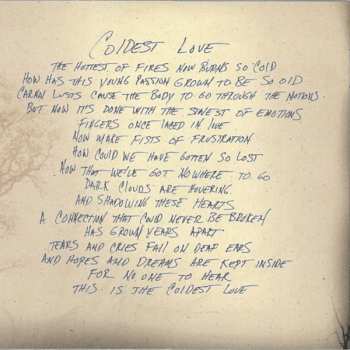 COLDEST LOVE
THE HOTTEST OF FIRES NOW BURNS SO COLD
HOW HAS THIS YOUNG PASSION GROWN TO BE SO OLD
CARNAL LUSTS CAUSE THE BODY TO GO THROUGH THE MOTIONS.
BUT NOW IT'S DONE WITH THE OF EMOTIONS
FINGERS ONCE LACED IN LOVE
NOW MAKE FISTS OF FRUSTRATION
HOW COULD WE HAVE GOTTEN SO LOST
NOW THAT WE'VE GOT NOWHERE TO GO
DARK CLOUDS ARE HOVERING
AND SHADOWING THESE HEARTS
A CONNECTION THAT COULD NEVER BE BROKEN
HAS GROWN YEARS APART
TEARS AND CRIES FALL ON DEAF EARS
AND HOPES AND DREAMS ARE KEPT INSIDE
FOR NO ONE TO HEAR
THIS IS THE COLDEST LOVE